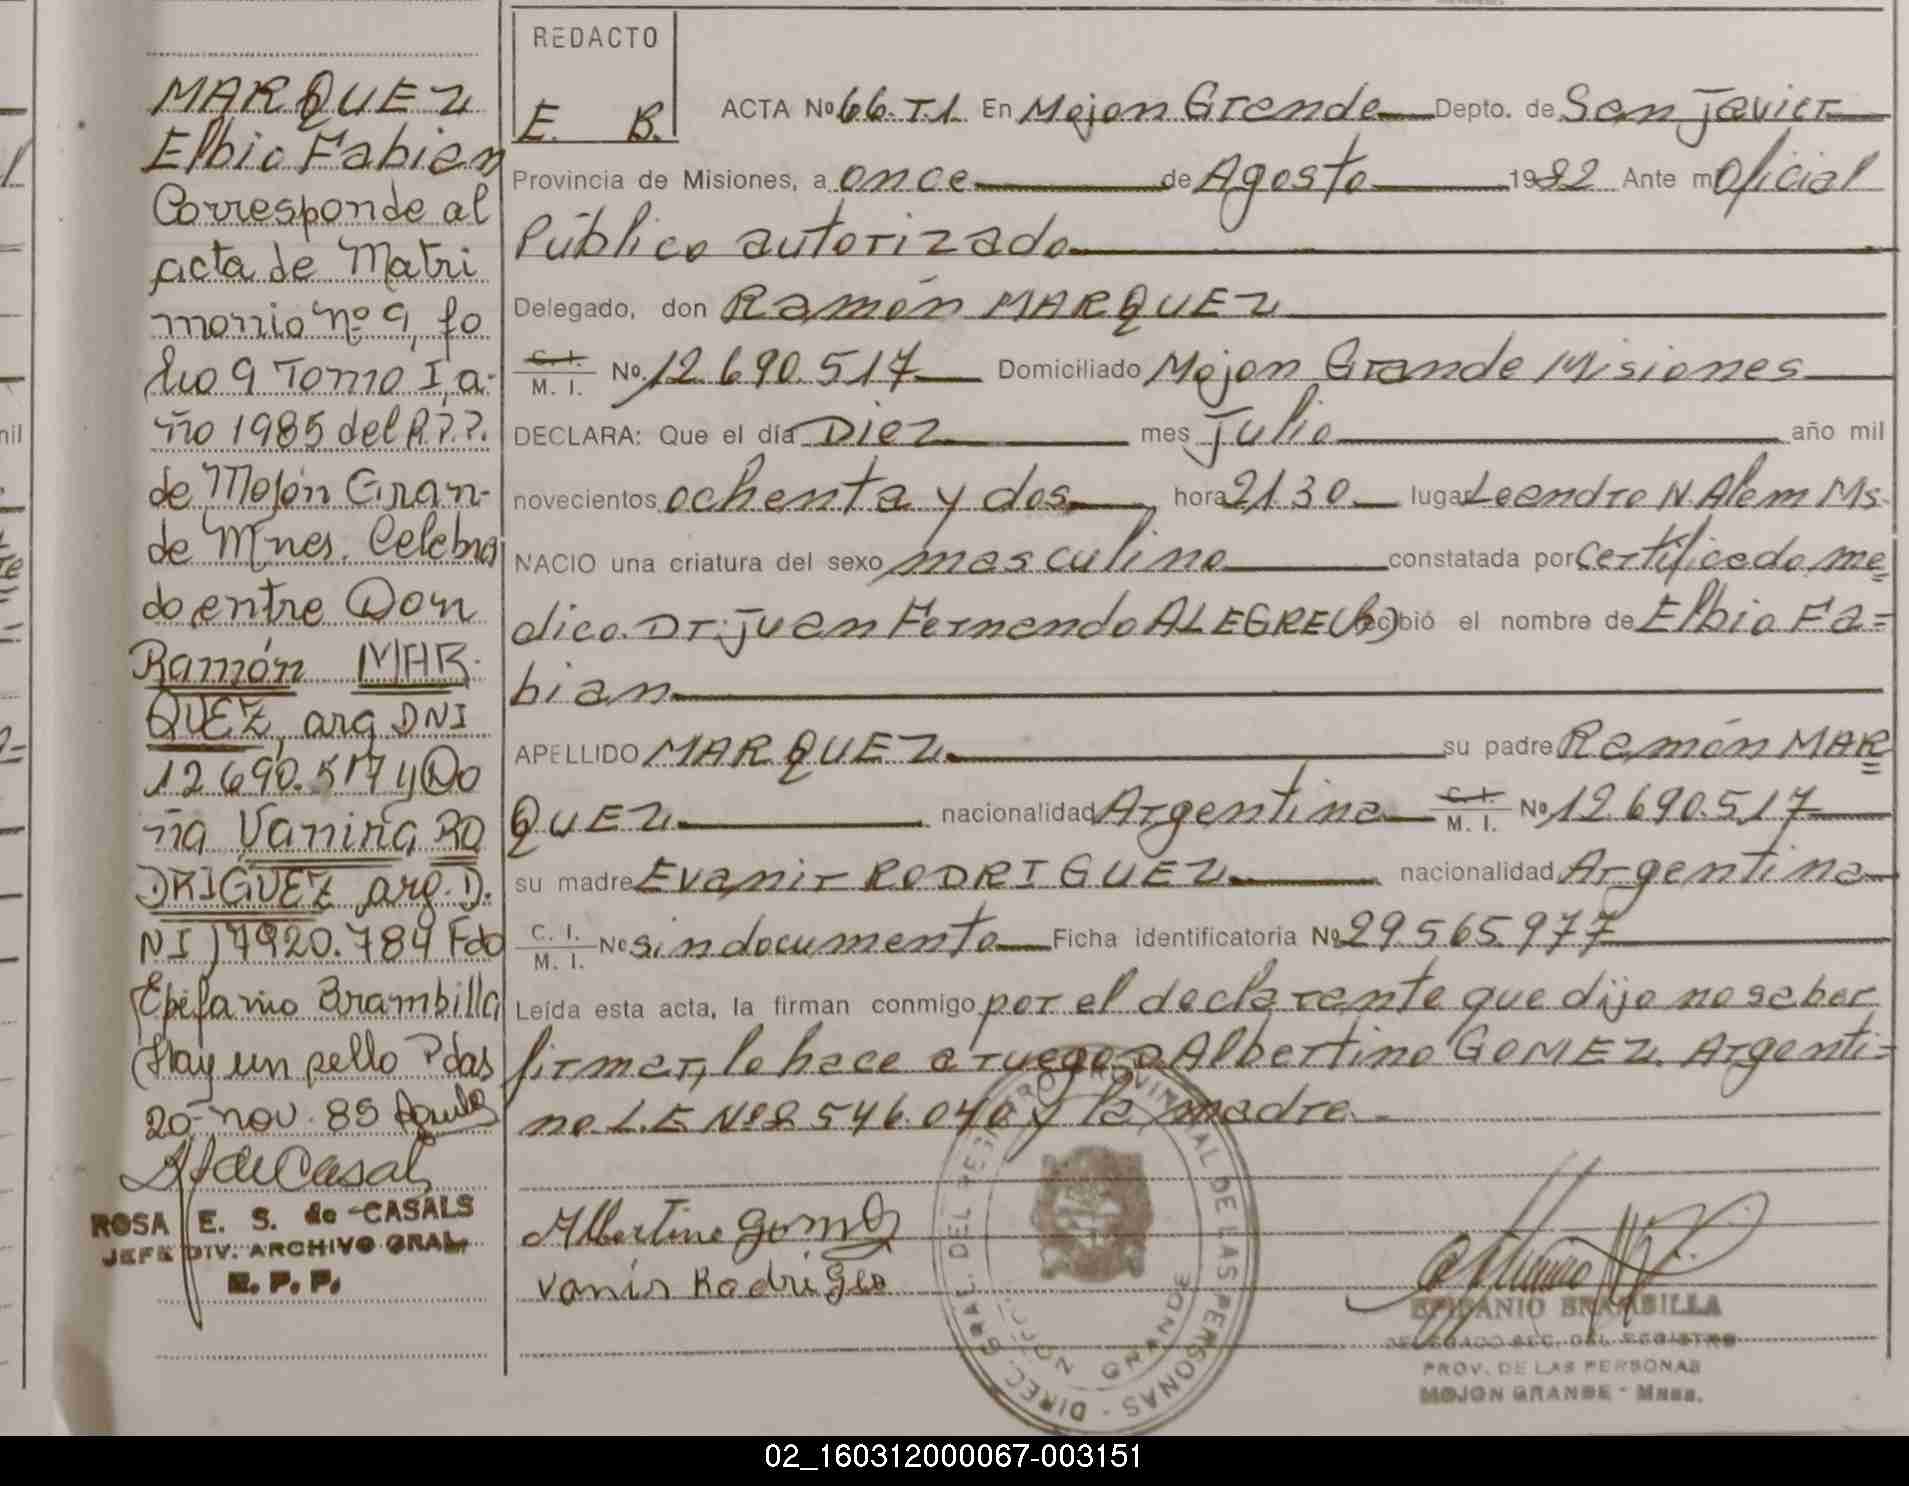 MARQUEZ
Elbio Fabian
Corresponde al
acta de Matri
monio nº 9, fo
lio 9 Tomo I, a-
ño 1985 del R.P.P.
de Mojón Gran-
de Mnes. Celebra
do entre Don
Ramón MAR-
QUEZ, arg DNI
12.690.517 y Do
ña Vanira RO
DRIGUEZ arg. D.
NI 17920.784 Fdo
Epifanio Brambilla
(Hay un sello) Pdas
20-nov. 85
ROSA E. S. de CASALS
JEFE DIV. ARCHIVO GRAL.
R. P. P.
REDACTO
E. B.
ACTA Nº 66. T1. En Mojon Grande Depto. de San Javier
Provincia de Misiones, a once de Agosto 1982 Ante mí Oficial
Público autorizado
Delegado, don Ramón MARQUEZ
C. I. M. I. No. 12.690.517 Domiciliado Mojon Grande Misiones
DECLARA: Que el día Diez mes Julio año mil
novecientos ochenta y dos hora 21.30 lugar Leandro N. Alem Ms.
NACIO una criatura del sexo masculino constatada por Certificado me=
dico. Dr. Juan Fernando ALEGRE(h) recibió el nombre de Elbio Fa=
bian
APELLIDO MARQUEZ su padre Ramón MAR=
QUEZ nacionalidad Argentina C. I. M. I. Nº 12.690.517
su madre Evanir RODRIGUEZ nacionalidad Argentina
C. I. M. I. Nº sin documento Ficha identificatoria Nº 29.565.977
Leída esta acta, la firman conmigo por el declarante que dijo no saber
firmar, lo hace a ruego D. Albertino GOMEZ. Argenti=
no L.E. Nº 2.546.040 y la madre.
Albertino Gomez
Vanir Rodriges
DIREC. GRAL. DEL REGISTRO PROVINCIAL DE LAS PERSONAS
MOJON GRANDE
EPIFANIO BRAMBILLA
DELEGADO SEC. DEL REGISTRO
PROV. DE LAS PERSONAS
MOJON GRANDE - Mnes.
año mil
02_160312000067-003151